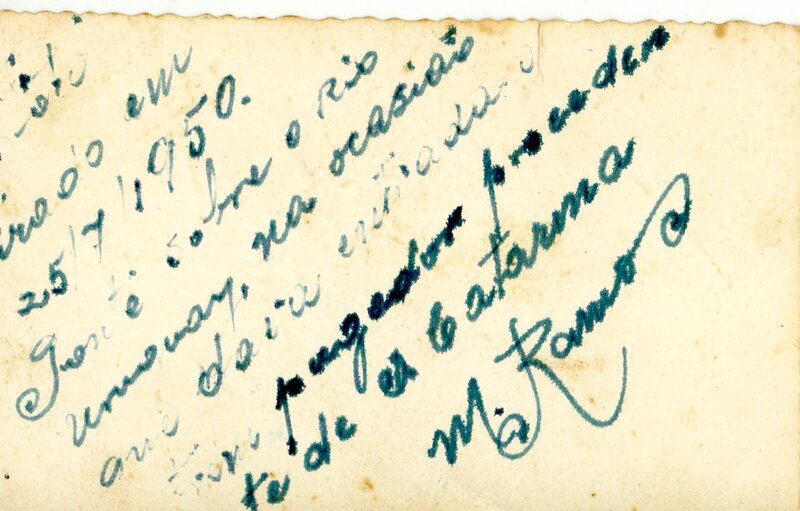 Foto
tirado em
25/7/1950.
Ponte sobre o rio
Uruguay, na ocasião
que dava entrada o
trem pagador proceden
te de S Catarina
M. Ramos